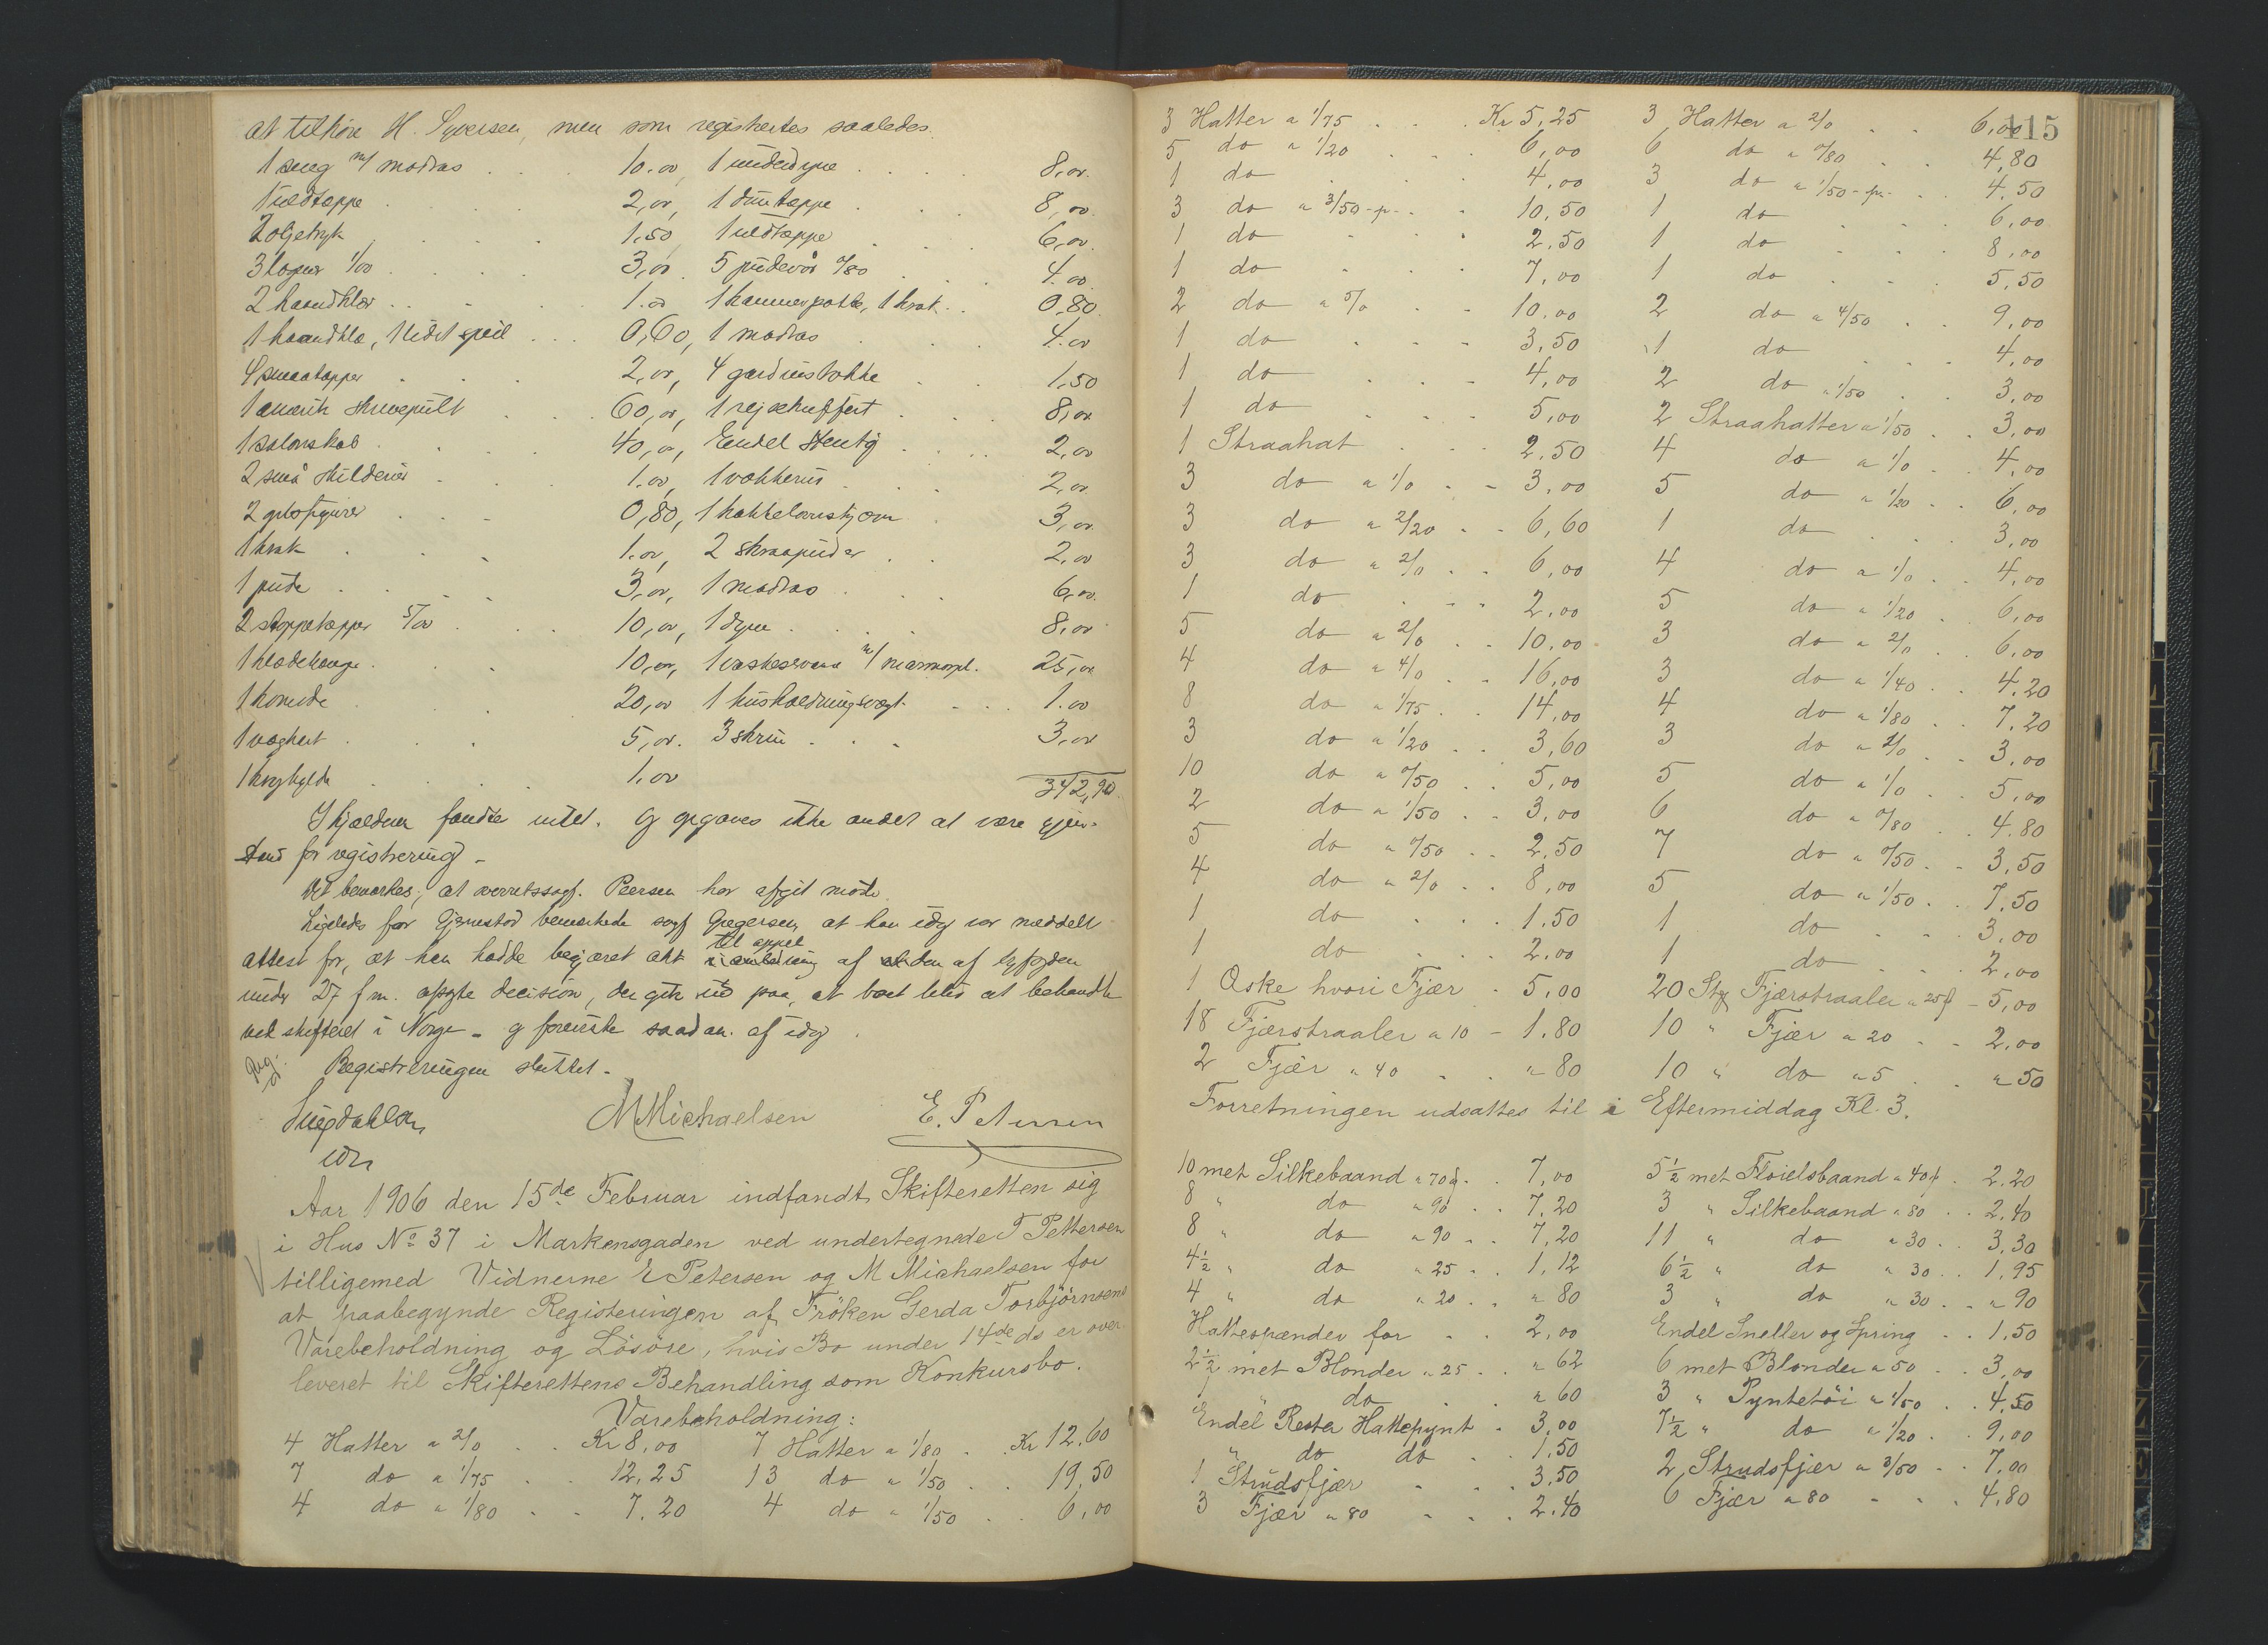 at tilhöre H. Syversen, men som registertes saaledes.
1 seng m/ madras . . . 10.00, 1 underdyne . . . . 8,00.
1 uldtæppe . . . . 2,00, 1 duntæppe . . . 8,00.
2 oljetryk . . . . 1.50 1 uldtæppe . . . 6,00.
3 lagner 1/00 . . . . 3,00. 5 pudevår 0/80 . . . 4.00
2 haandklær . . . . 1.00 1 kammerpotte, 1 krak . . 0.80.
1 haandklæ, 1 lidet speil . . . 0,60, 1 madras . . . 4.00
4 smaatæpper . . . 2,00, 4 gardinstokke . . 1.50
1 amerik skrivepult . . . 60,00, 1 rejsekuffert . . . 8,00
1 salonskab . . . 40,00, Endel Stentøj . . . . 2,00
2 små skilderier . . . 1.00, 1 vækkerur . . . 2,00
2 gibsfigurer . . . 0,80, 1 kakkelovnskjærm . 3,00.
1 krak . . . . 1.00, 2 skraapuder . . 2,00
1 pude . . . . 3,00, 1 madras . . . 6,00.
2 stoppetæpper 5/00 . . . 10,00, 1 dyne . . . . 8.00
1 klædehænge . . . 10,00, 1 vaskeservant m/ marmorpl. 25,00
1 komode . . . 20,00 1 husholdningsvægt . . . 1.00
1 væghert . . . 5,00. 3 skrin . . . 3,00
1 hyghylde . . . 1.00 342,90.
I kjælderen fandtes intet. Og opgaves ikke andet at være gjen-
stand for registrering. -
Det bemærkes, at overretssagf. Peersen har afgit møde.
Ligeledes før Gjenstod bemærkede sagf Gregersen, at han idag var meddelt
attest for, at han hadde begjæret akt til appel af den af byfogden
under 27 f. m. afsagte decision, der gik ud paa, at boet blev at behandle
ved skifteret i Norge - og foreviste saadan af idag.
Registreringen sluttet. -
M Michaelsen E. Petersen
Aar 1906 den 15de Februar indfandt Skifteretten sig
i Hus No 37 i Markensgaden ved undertegnede T Pettersen
tilligemed Vidnerne E Petersen og M Michaelsen for
at paabegynde Registeringen af Fröken Gerda Torbjörnsens
Varebeholdning og Lösöre, hvis Bo under 14de ds er over-
leveret til Skifterettens Behandling som Konkursbo.
Varebeholdning:
4 Hatter a 2/0 . . Kr 8,00 7 Hatter a 1/80 . . Kr 12.60
7 do a 1/75 . . 12.25 13 do a 1/50 . . 19,50
4 do a 1/80 . . 7.20 4 do a 1/50 . . 6,00
115
3 Hatter a 1/75 . . . Kr 5,25 3 Hatter a 2/0 . . 6,00
5 do a 1/20 . . 6,00 6 do a 0/80 . . 4,80
1 do . . . 4,00 3 do a 1/50 - pr. . . 4,50
3 do a 3/50 - pr. . . 10.50 1 do . . . 6,00
1 do . . . 2.50 1 do . . . 8,00
1 do . . . 7,00 1 do . . . 5,50
2 do a 5/0 . . 10.00 2 do a 4/50 . . 9,00
1 do . . . 3,50 1 do . . . 4,00
1 do . . . 4,00 2 do a 1/50 . . 3,00
1 do . . . 5,00 2 Straahatter a 1/50 . . 3,00
1 Straahat . . . 2.50 4 do a 1/0 . . 4,00
3 do a 1/0 . - 3,00 5 do a 1/20 . . 6,00
3 do a 2/20 . . 6,60 1 do . . . 3,00
3 do a 2/0 . . 6,00 4 do a 1/0 . . 4,00
1 do . . . 2,00 5 do a 1/20 . 6,00
5 do a 2/0 . . 10,00 3 do a 2/0 . . 6,00
4 do a 4/0 . . 16,00 3 do a 1/40 . . 4.20
8 do a 1/75 . . 14,00 4 do a 1/80 . . 7.20
3 do a 1/20 . . 3,60 3 do a /0 . . 3,00
10 do a 0/50 . . 5,00 5 do a 1/0 . . 5,00
2 do a 1/50 . . 3,00 6 do a 0/80 . . 4.80
5 do a 0/50 . . 2.50 7 do a 0/50 . . 3,50
4 do a 2/0 . . 8,00 5 do a 1/50 . . 7.50
1 do . . . 1.50 1 do . . . 3,00
1 do . . . 2.00 1 do . . . 2,00
1 Æske hvori Fjær . 5,00 20 Stk Fjærstraaler a 25 ø - 5,00
18 Fjærstraaler a 10 - 1.80 10 " Fjær a 20 . . 2,00
2 Fjær a 40 . . " 80 10 " do a 5 . . " 50
Forretningen udsattes til i Eftermiddag Kl. 3.
10 met Silkebaand a 70 ø . . 7,00 5½ met Flöielsbaand a 40 ø . 2.20
8 " do a 90 . . 7.20 3 " Silkebaand a 80 . . 2.40
8 " do a 90 . . 7.20 11 " do a 30 . . 3.30
4½ " do a 25 . . 1.12 6½ " do a 30 . . 1.95
4 " do a 20 . . " 80 3 " do a 30 . . " 90
Hattespænder for . . 2,00 Endel Sneller og Spring . . 1.50
2½ met Blonder a 25 . . " 62 6 met Blonder a 50 . . 3,00
1 " do . . " 60 3 " Pyntetöi a 1/50 . . 4.50
Endel Rester Hattepynt . 3,00 7½ " do a 1/20 . . 9,00
" do do . . 1.50 2 Strudsfjær a 3/50 . . 7.00
1 Strudsfjær . . . 3.50 6 Fjær a 80 . . . 4.80
3 Fjær a 80 . . . 2.40